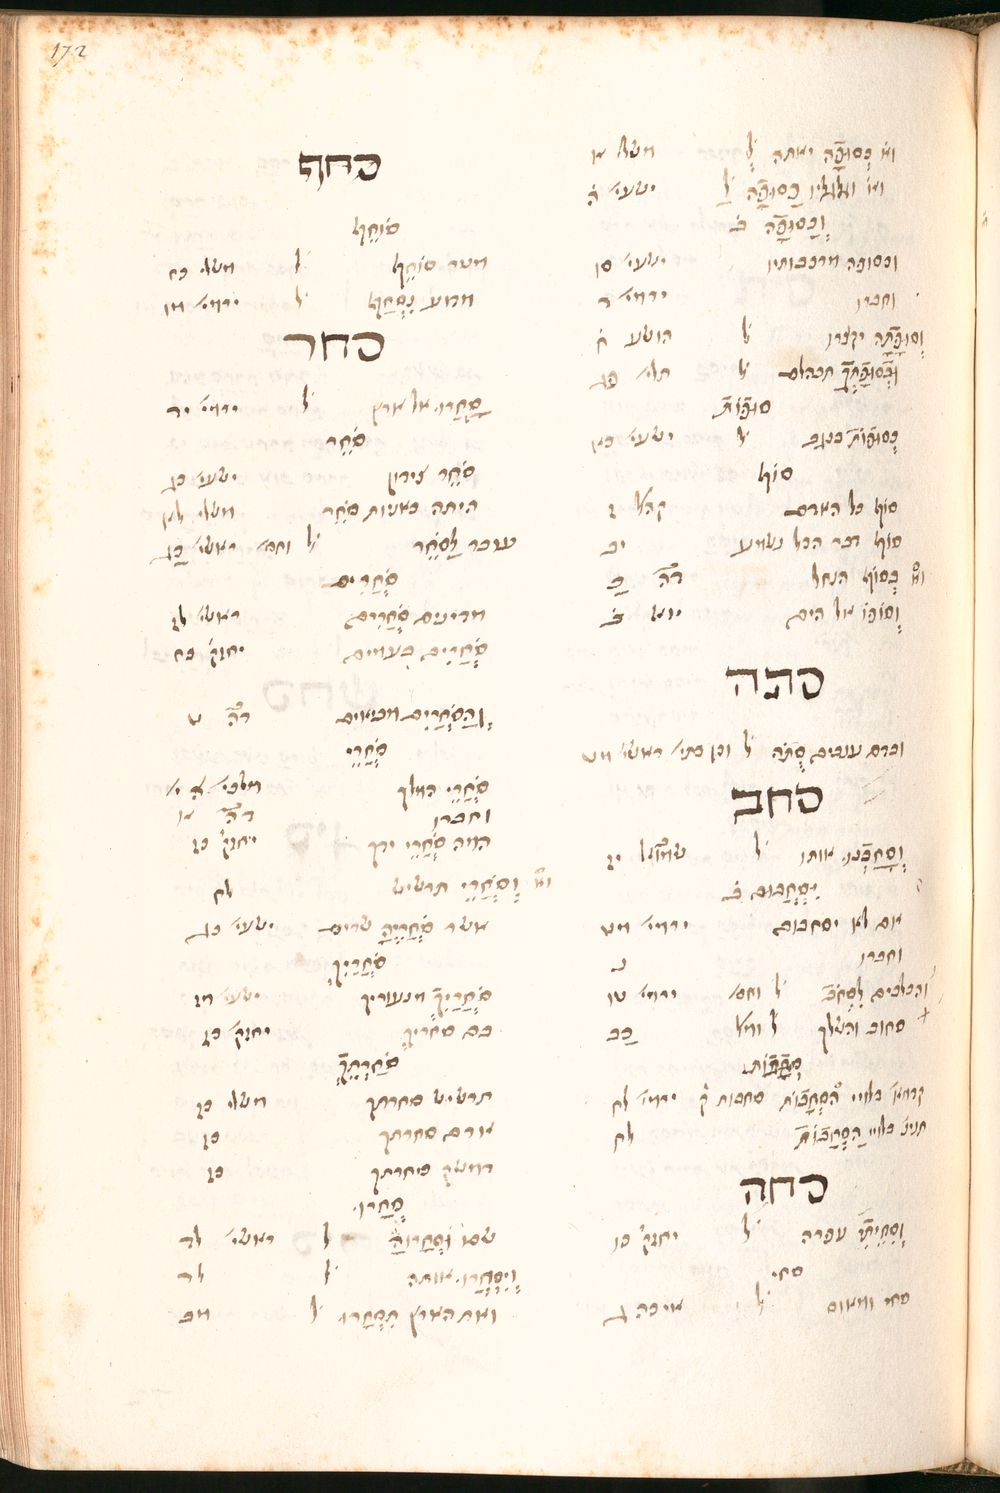 172
וא׳ כְסוּפָה יאתה ל׳ משלי א׳
וא׳ וגלגליו כַסוּפָה ל׳ ישעי׳ ה׳
וְכַסוּפָה ב׳
וכסופה מרכבותיו ישעי׳ סו
וחברו ירמי׳ ד
וְסוּפָתָה יקצרו ל׳ הושע ח׳
וּבְסוּפָתְךָ תבהלם ל׳ תלי׳ פג
סוּפוֹת
כְסוּפוֹת בנגב ל׳ ישעי׳ כא
סוֹף
סוֹף כל האדם קהל׳ ז
סוֹף דבר הכל נשמע יב
וא׳ בְסוֹף הנחל דה׳ ב כ
וְסוֹפוֹ אל הים יואל ב׳
סתה
וכדם ענבים סֻתֹה ל׳ וכן כתי׳ ראשי׳ מט
סחב
וְסָחַבְנו אותו ל׳ שמואל יז
יִסְחָבום ב׳
אם לא יסחבום ירמי׳ מט
וחברו נ
והכלבים לִסְחֹב ל׳ וחס׳ ירמי׳ טו
סחוב והשלך ל׳ ומל׳ כב
סְחָבוֹת
קדמא׳ בלויי הַסְחָבוֹת סחבות ק׳ ירמי׳ לח
תנינ׳ בלויי הַסְחָבוֹת לח
סחה
וְסִחֵיתִי עפרה ל׳ יחזק׳ כו
סחי
סחי ומאוס ל׳ איכה ג
סחף
סֹוחֵף
מטר סוֹחֵף ל׳ משלי כח
מדוע נִסְחַף ל׳ ירמי׳ מו
סחר
סָחֲרו אל ארץ ל׳ ירמי׳ יד
סֹחֵר
סֹחֵר צידון ישעי׳ כג
היתה כאניות סֹחֵר משלי לא
עובר לַסֹחֵר ל׳ וחס׳ ראשי׳ כג
סֹחֲרִים
מדינים סֹחֲרִים ראשי׳ לז
סֹחֲרִים בעמים יחזק׳ כז
וְהַסֹחֲרִים מביאים דה׳ ט
סֹחֲרֵי
סֹחֲרֵי המלך מלכי׳ א י׳
וחברו דה׳ א׳
המה סֹחֲרֵי ידך יחזק׳ כז
וא׳ וְסֹחֲרֵי תרשיש לח
אשר סֹחֲרֶיהָ שרים ישעי׳ כג
סֹחֲרַיִךְ
סֹחֲרַיִךְ מנעוריך ישעי׳ מז
בם סחריך יחזק׳ כז
סֹחַרְתֵךְ
תרשיש סחרתך משלי כז
ארם סחרתך כז
דמשק סחרתך כז
סְחָרו
שבו וּסְחָרוּהָ ל׳ ראשי׳ לד
וְיִסְחֲרו אותה ל׳ לד
ואת הארץ תִסְחָרו ל׳ מב